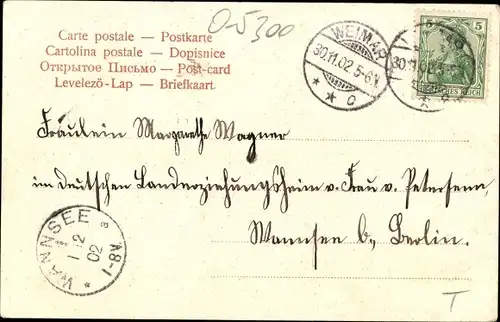 O-5300
Carte postale — Postkarte
Cartolina postale — Dopisnice
Открытое Письмо — Post-card
Levelező-Lap — Briefkaart
WEIMAR
30.11.02 5-6N.
* * c
5 5
DEUTSCHES REICH
Fräulein Margarethe Wagner
im deutschen Landerziehungsheim v. Frau v. Petersenn,
Wannsee b. Berlin.
WANNSEE * a
1 12
02
1-8N
T